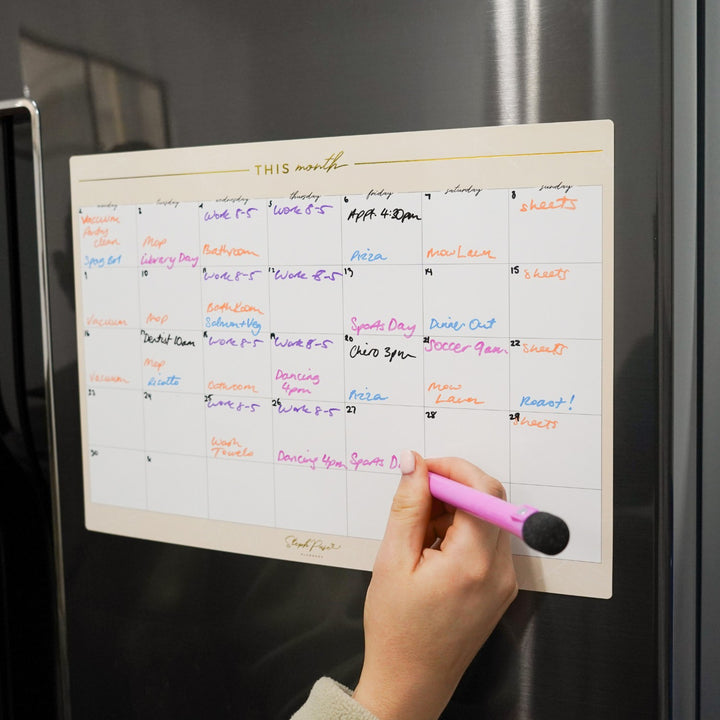 THIS month
monday tuesday wednesday thursday friday saturday sunday
2 4 5 6 7 8
Vacuum
Party
clean
Spag Bol
Mop
Library Day
Work 8-5
Bathroom
Work 8-5
Appt 4:30pm
Pizza
Mow Lawn
Sheets
9 10 11 12 13 14 15
Vacuum
Mop
Work 8-5
Bathroom
Salmon + Veg
Work 8-5
Sports Day
Dinner Out
Sheets
16 17 18 19 20 21 22
Vacuum
Dentist 10am
Mop
Risotto
Work 8-5
Bathroom
Work 8-5
Dancing
4pm
Chiro 3pm
Pizza
Soccer 9am
Mow
Lawn
Sheets
Roast!
23 24 25 26 27 28 29
Work 8-5
Wash
Towels
Work 8-5
Dancing 4pm
Sports D
Sheets
30